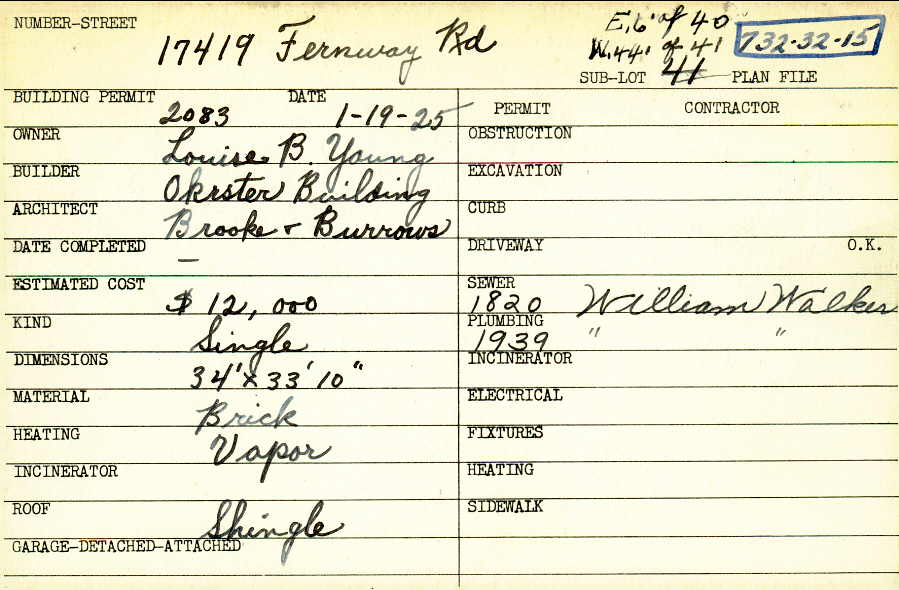 NUMBER-STREET
17419 Fernway Rd
E, 6' of 40
W. 44' of 41
732-32-15
SUB-LOT 41 PLAN FILE
BUILDING PERMIT 2083 DATE 1-19-25
OWNER Louise B. Young
BUILDER Okrster Building
ARCHITECT Brooke + Burrows
DATE COMPLETED —
ESTIMATED COST $ 12,000
KIND Single
DIMENSIONS 34' x 33' 10"
MATERIAL Brick
HEATING Vapor
INCINERATOR
ROOF Shingle
GARAGE-DETACHED-ATTACHED
PERMIT CONTRACTOR
OBSTRUCTION
EXCAVATION
CURB
DRIVEWAY O.K.
SEWER 1820 William Walker
PLUMBING 1939 " "
INCINERATOR
ELECTRICAL
FIXTURES
HEATING
SIDEWALK